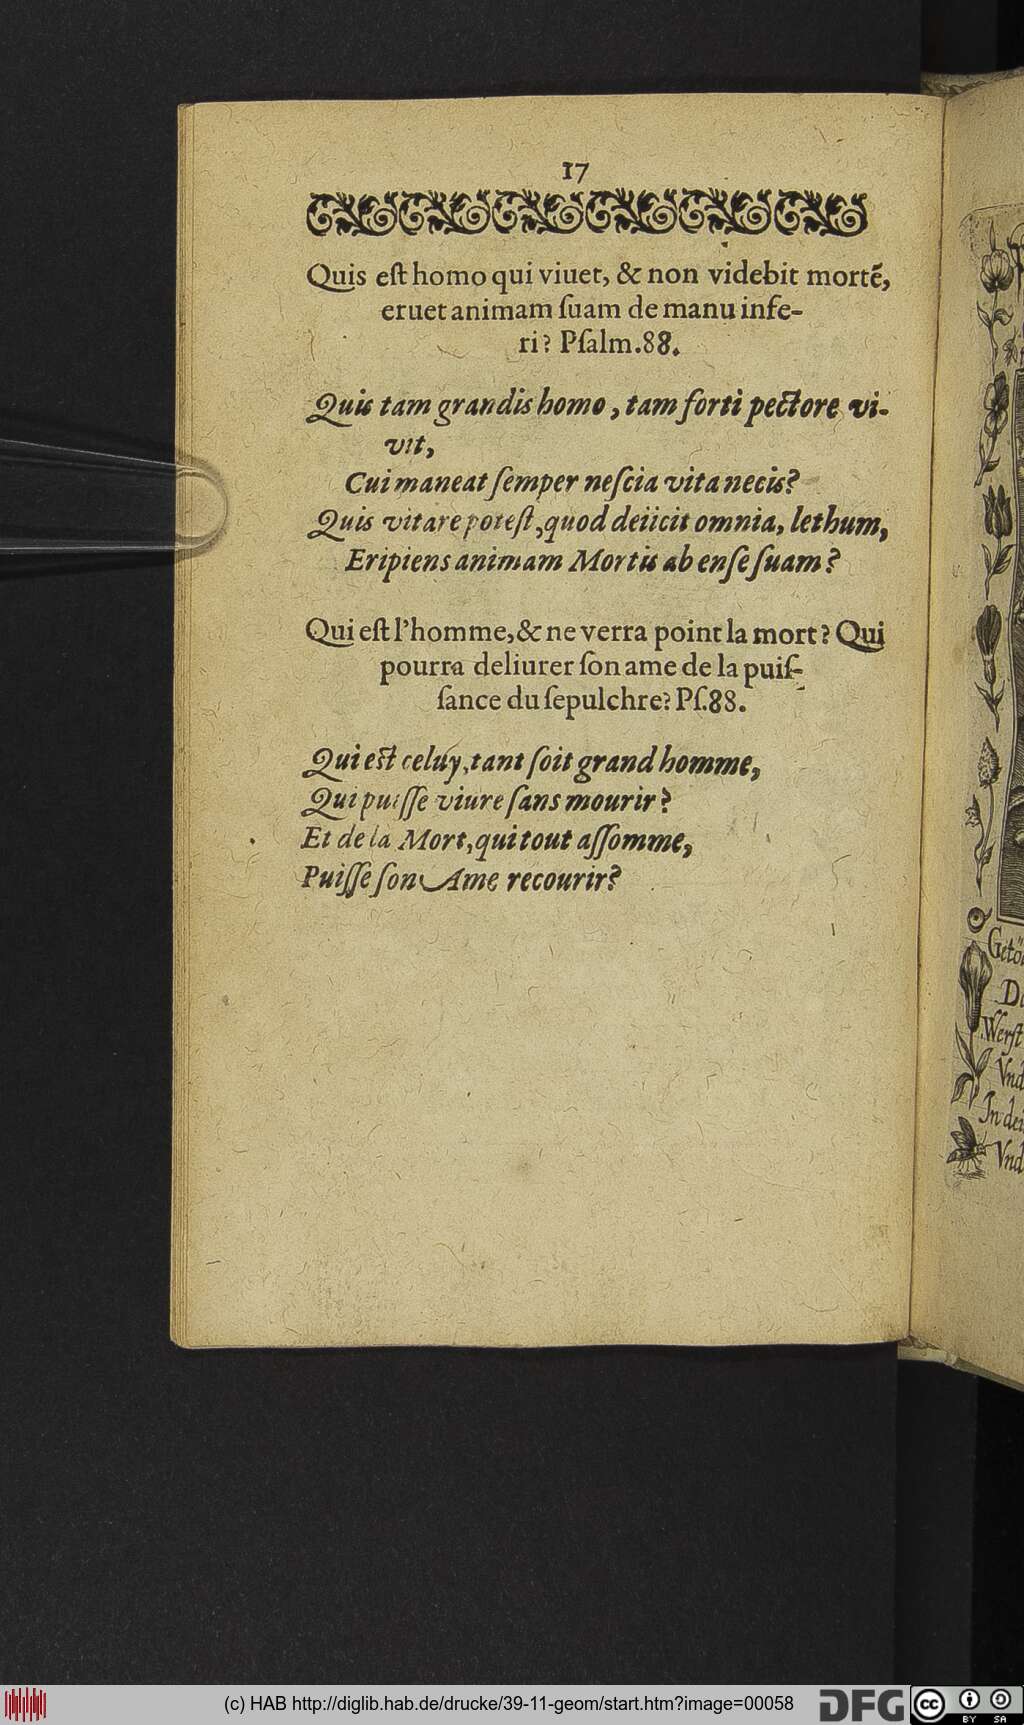 17
Quis eſt homo qui viuet, & non videbit mortē,
eruet animam ſuam de manu infe-
ri? Pſalm.88.
Quis tam grandis homo, tam forti pectore vi-
vit,
Cui maneat ſemper neſcia vita necis?
Quis vitare poteſt, quod deiicit omnia, lethum,
Eripiens animam Mortis ab enſe ſuam?
Qui eſt l'homme, & ne verra point la mort? Qui
pourra deliurer ſon ame de la puiſ-
ſance du ſepulchre? Pſ.88.
Qui est celuy, tant ſoit grand homme,
Qui puiſſe viure ſans mourir?
Et de la Mort, qui tout aſſomme,
Puiſſe ſon Ame recourir?
Werſt
Vnd
In
Vnd
(c) HAB http://diglib.hab.de/drucke/39-11-geom/start.htm?image=00058
DFG
cc
BY SA